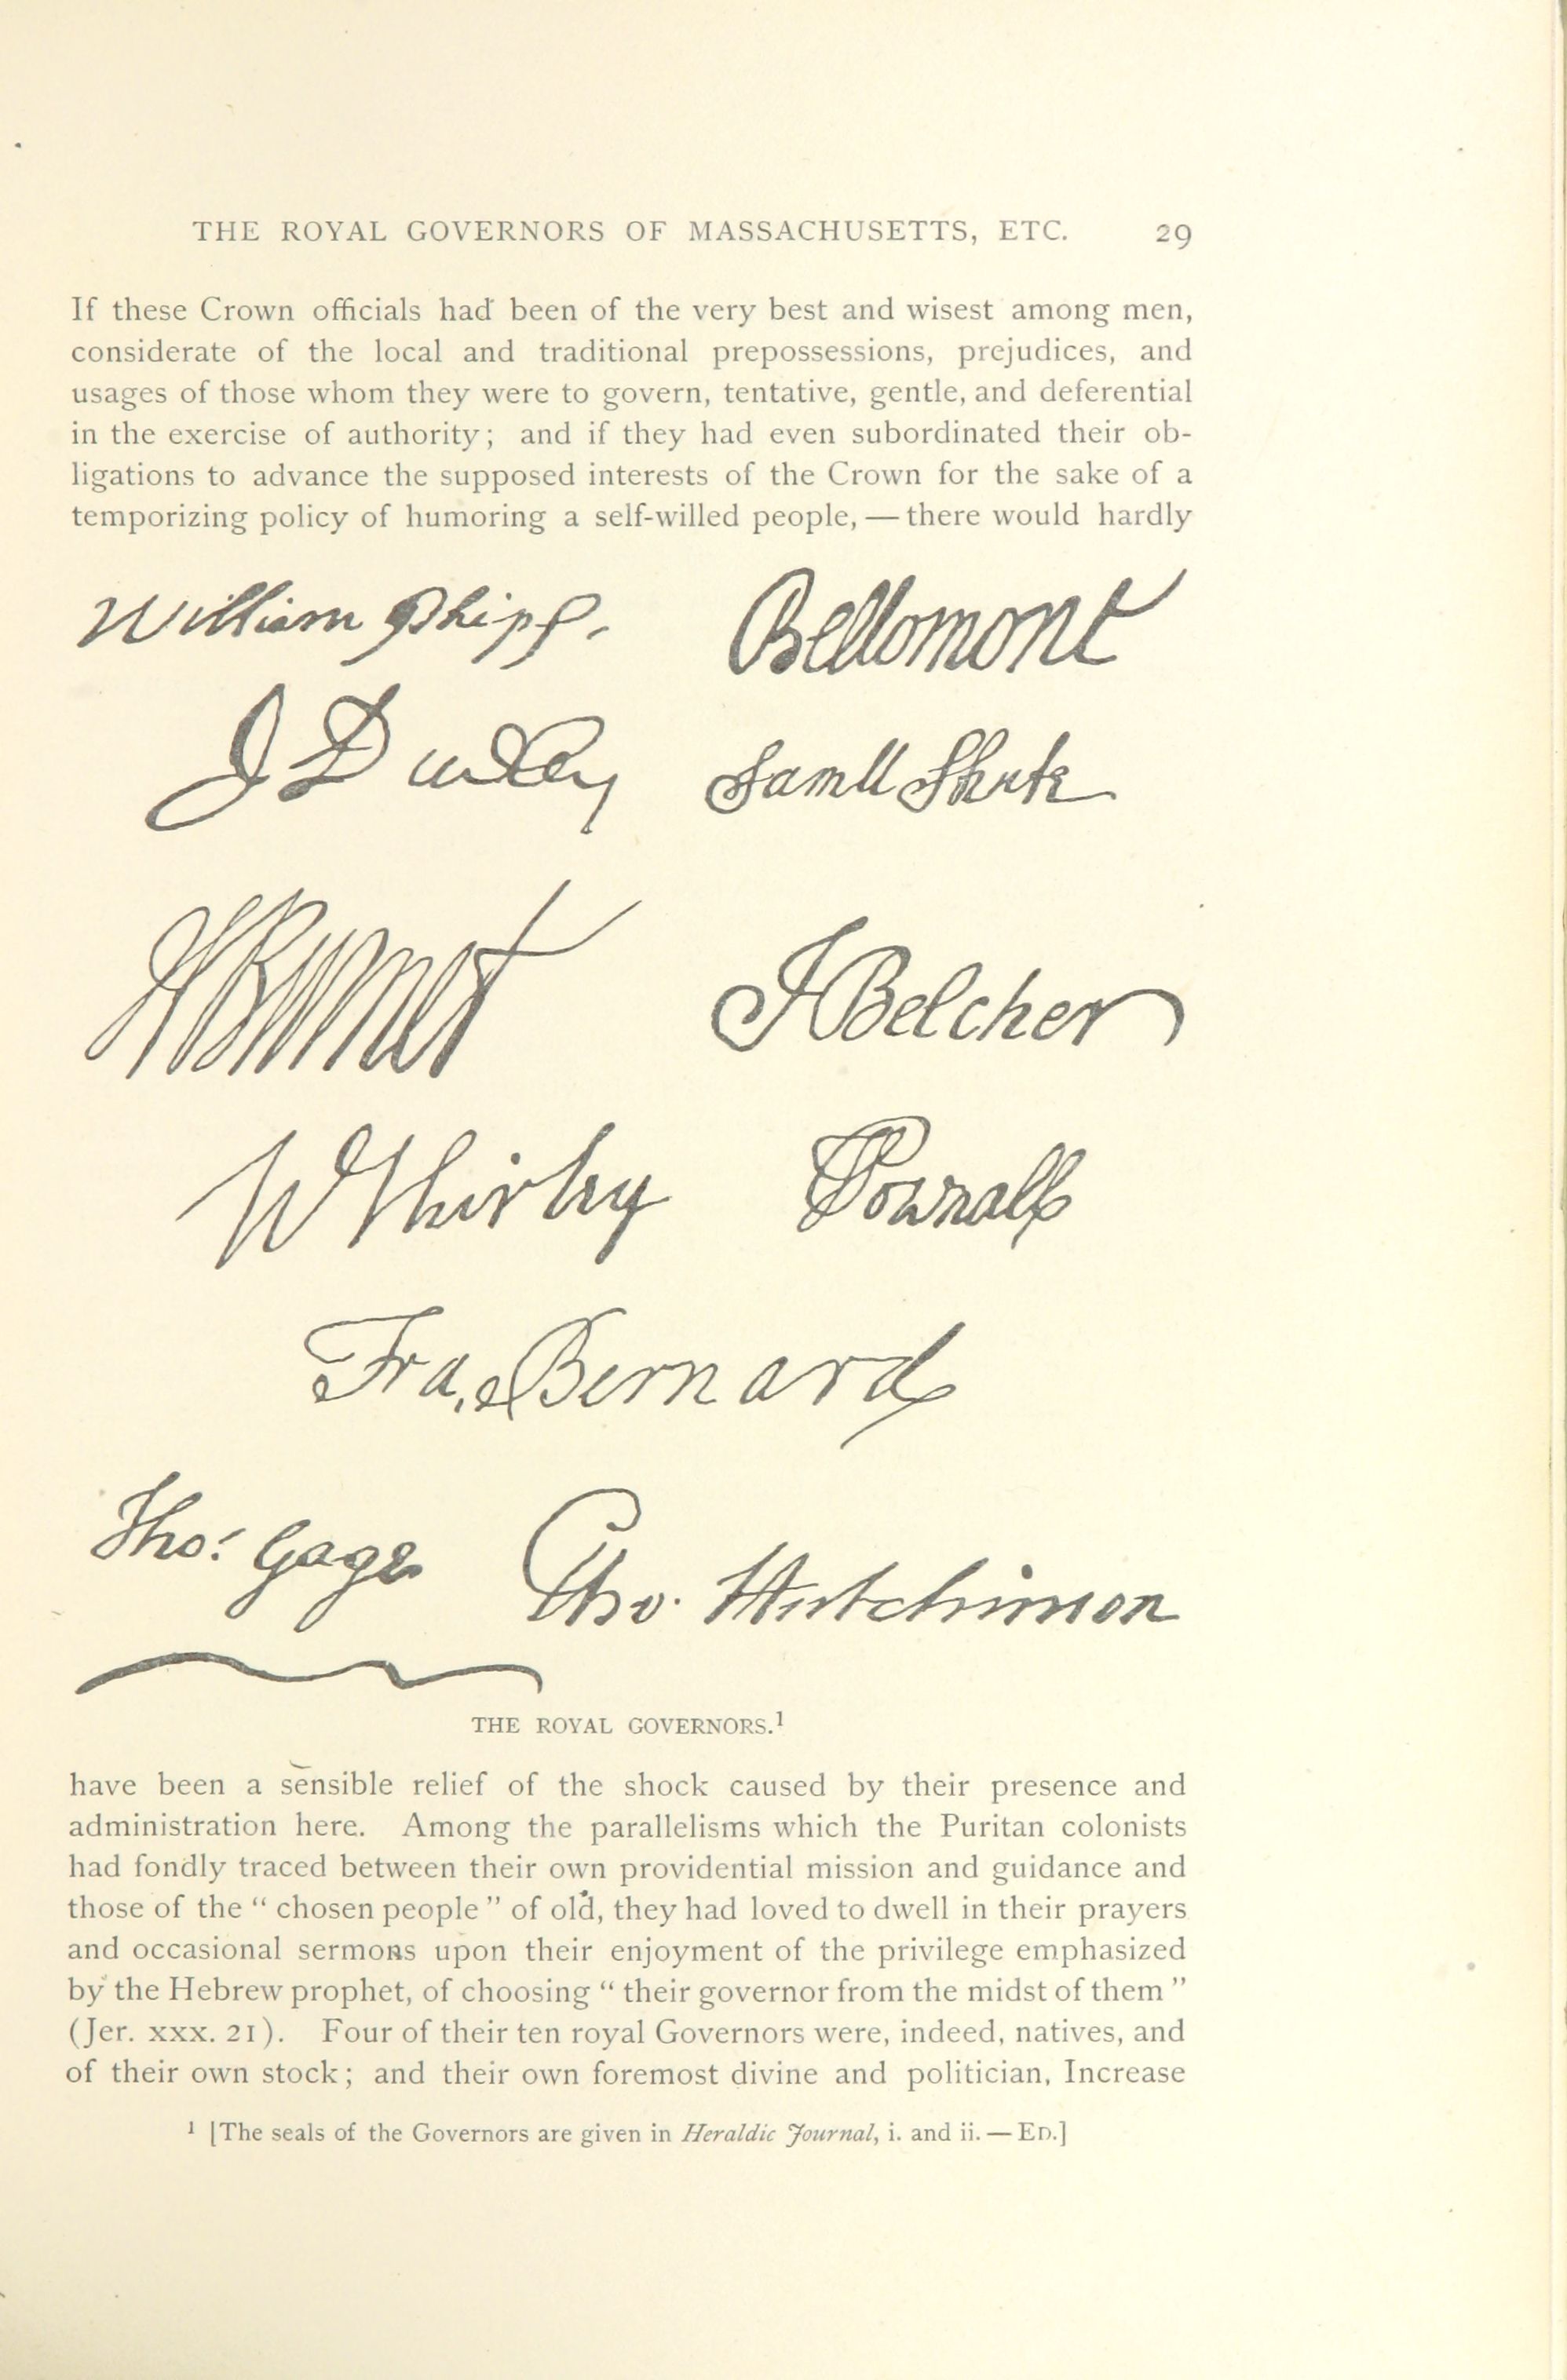 THE ROYAL GOVERNORS OF MASSACHUSETTS, ETC. 29
If these Crown officials had been of the very best and wisest among men,
considerate of the local and traditional prepossessions, prejudices, and
usages of those whom they were to govern, tentative, gentle, and deferential
in the exercise of authority; and if they had even subordinated their ob-
ligations to advance the supposed interests of the Crown for the sake of a
temporizing policy of humoring a self-willed people, — there would hardly
William Phipps. Bellomont
J Dudley Samll Shute
W Burnet J Belcher
W Shirley T Pownall
Fra. Bernard
Tho: Gage Tho. Hutchinson
THE ROYAL GOVERNORS.¹
have been a sensible relief of the shock caused by their presence and
administration here. Among the parallelisms which the Puritan colonists
had fondly traced between their own providential mission and guidance and
those of the “ chosen people ” of old, they had loved to dwell in their prayers
and occasional sermons upon their enjoyment of the privilege emphasized
by the Hebrew prophet, of choosing “ their governor from the midst of them ”
(Jer. xxx. 21). Four of their ten royal Governors were, indeed, natives, and
of their own stock; and their own foremost divine and politician, Increase
¹ [The seals of the Governors are given in Heraldic Journal, i. and ii. — ED.]